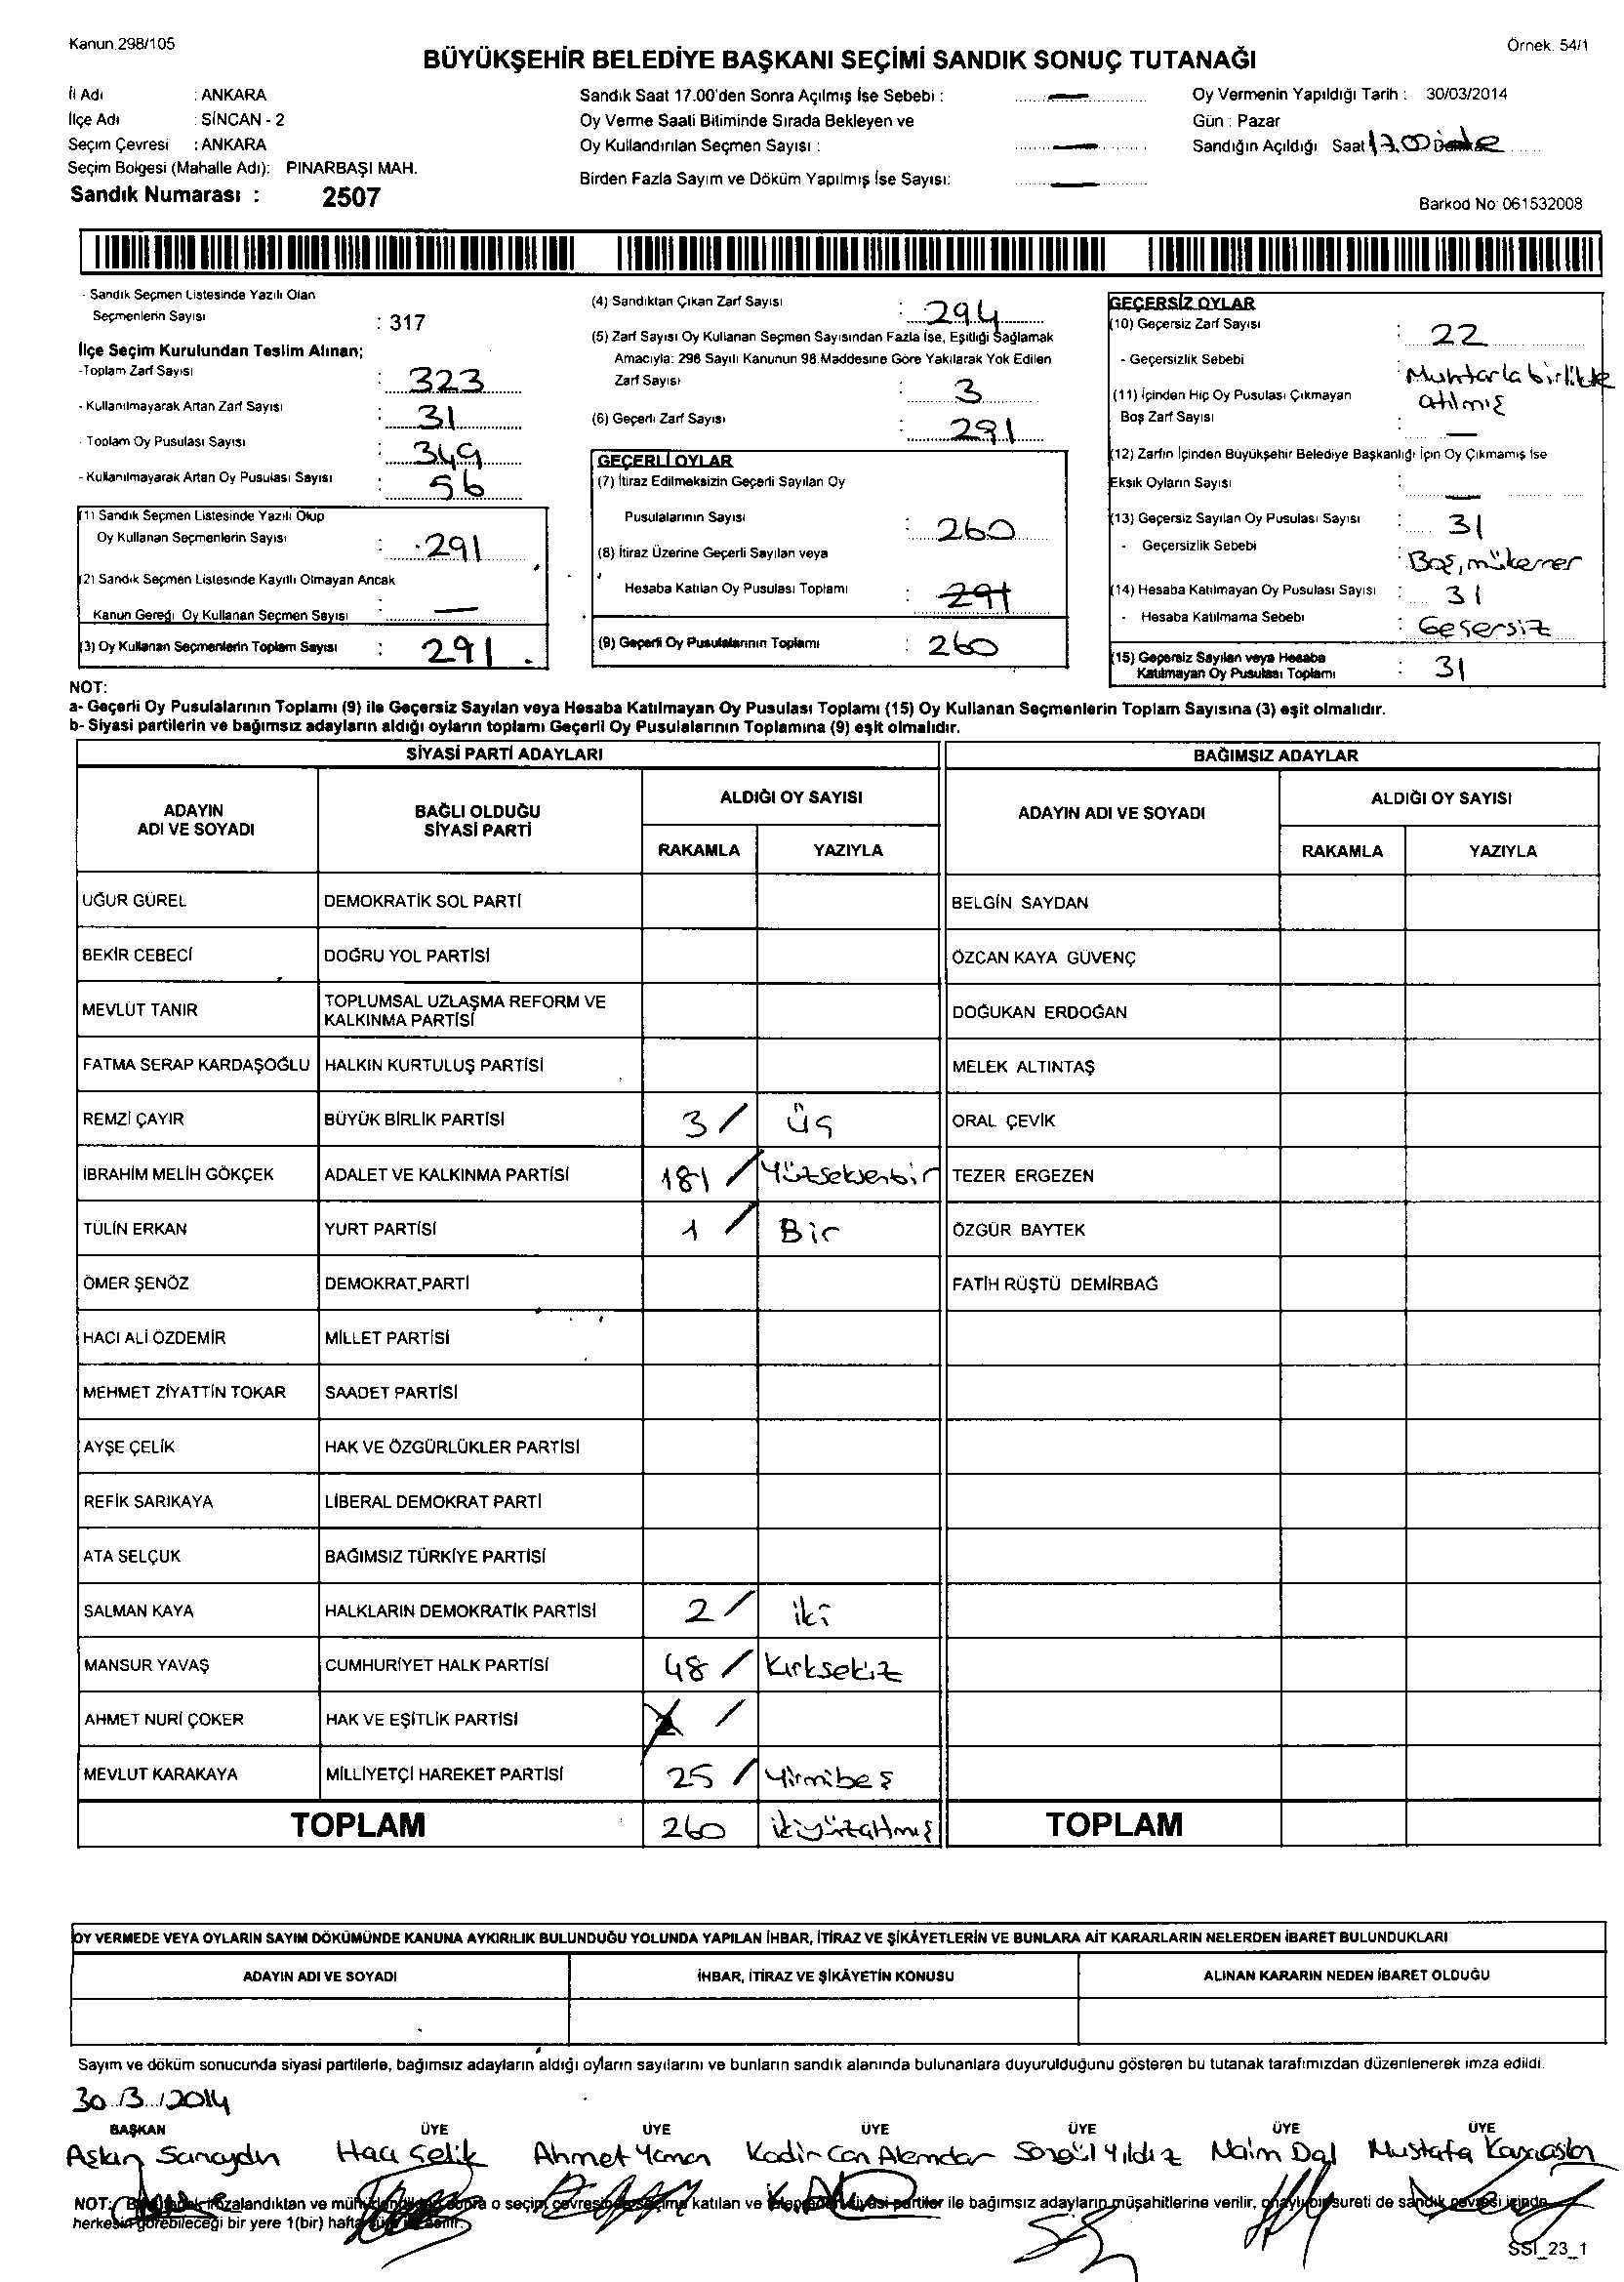 Kanun 298/105
Örnek. 54/1
BÜYÜKŞEHİR BELEDİYE BAŞKANI SEÇİMİ SANDIK SONUÇ TUTANAĞI
İl Adı : ANKARA
İlçe Adı : SİNCAN - 2
Seçim Çevresi : ANKARA
Seçim Bölgesi (Mahalle Adı): PINARBAŞI MAH.
Sandık Numarası : 2507
Sandık Saat 17.00'den Sonra Açılmış İse Sebebi : —
Oy Verme Saati Bitiminde Sırada Bekleyen ve
Oy Kullandırılan Seçmen Sayısı : —
Birden Fazla Sayım ve Döküm Yapılmış İse Sayısı: —
Oy Vermenin Yapıldığı Tarih : 30/03/2014
Gün : Pazar
Sandığın Açıldığı Saat 17.00
Barkod No 061532008
- Sandık Seçmen Listesinde Yazılı Olan
Seçmenlerin Sayısı : 317
İlçe Seçim Kurulundan Teslim Alınan;
-Toplam Zarf Sayısı : 323
- Kullanılmayarak Artan Zarf Sayısı : 31
- Toplam Oy Pusulası Sayısı : 349
- Kullanılmayarak Artan Oy Pusulası Sayısı : 56
(1) Sandık Seçmen Listesinde Yazılı Olup
Oy Kullanan Seçmenlerin Sayısı : 291
(2) Sandık Seçmen Listesinde Kayıtlı Olmayan Ancak
Kanun Gereği Oy Kullanan Seçmen Sayısı : —
(3) Oy Kullanan Seçmenlerin Toplam Sayısı : 291
(4) Sandıktan Çıkan Zarf Sayısı : 294
(5) Zarf Sayısı Oy Kullanan Seçmen Sayısından Fazla İse, Eşitliği Sağlamak
Amacıyla: 298 Sayılı Kanunun 98.Maddesine Göre Yakılarak Yok Edilen
Zarf Sayısı : 3
(6) Geçerli Zarf Sayısı : 291
GEÇERLİ OYLAR
(7) İtiraz Edilmeksizin Geçerli Sayılan Oy
Pusulalarının Sayısı : 260
(8) İtiraz Üzerine Geçerli Sayılan veya
Hesaba Katılan Oy Pusulası Toplamı : 291
(9) Geçerli Oy Pusulalarının Toplamı : 260
GEÇERSİZ OYLAR
(10) Geçersiz Zarf Sayısı : 22
- Geçersizlik Sebebi : Muhtarla birlikte
atılmış
(11) İçinden Hiç Oy Pusulası Çıkmayan
Boş Zarf Sayısı : —
(12) Zarfın İçinden Büyükşehir Belediye Başkanlığı İçin Oy Çıkmamış İse
Eksik Oyların Sayısı : —
(13) Geçersiz Sayılan Oy Pusulası Sayısı : 31
- Geçersizlik Sebebi : Boş, mükerrer
(14) Hesaba Katılmayan Oy Pusulası Sayısı : 31
- Hesaba Katılmama Sebebi : Geçersiz
(15) Geçersiz Sayılan veya Hesaba
Katılmayan Oy Pusulası Toplamı : 31
NOT:
a- Geçerli Oy Pusulalarının Toplamı (9) ile Geçersiz Sayılan veya Hesaba Katılmayan Oy Pusulası Toplamı (15) Oy Kullanan Seçmenlerin Toplam Sayısına (3) eşit olmalıdır.
b- Siyasi partilerin ve bağımsız adayların aldığı oyların toplamı Geçerli Oy Pusulalarının Toplamına (9) eşit olmalıdır.
SİYASİ PARTİ ADAYLARI
BAĞIMSIZ ADAYLAR
ADAYIN ADI VE SOYADI
BAĞLI OLDUĞU SİYASİ PARTİ
ALDIĞI OY SAYISI
RAKAMLA YAZIYLA
ADAYIN ADI VE SOYADI
ALDIĞI OY SAYISI
RAKAMLA YAZIYLA
UĞUR GÜREL DEMOKRATİK SOL PARTİ BELGİN SAYDAN
BEKİR CEBECİ DOĞRU YOL PARTİSİ ÖZCAN KAYA GÜVENÇ
MEVLÜT TANIR TOPLUMSAL UZLAŞMA REFORM VE KALKINMA PARTİSİ DOĞUKAN ERDOĞAN
FATMA SERAP KARDAŞOĞLU HALKIN KURTULUŞ PARTİSİ MELEK ALTINTAŞ
REMZİ ÇAYIR BÜYÜK BİRLİK PARTİSİ 3 / Üç ORAL ÇEVİK
İBRAHİM MELİH GÖKÇEK ADALET VE KALKINMA PARTİSİ 181 / Yüzseksenbir TEZER ERGEZEN
TÜLİN ERKAN YURT PARTİSİ 1 / Bir ÖZGÜR BAYTEK
ÖMER ŞENÖZ DEMOKRAT PARTİ FATİH RÜŞTÜ DEMİRBAĞ
HACI ALİ ÖZDEMİR MİLLET PARTİSİ
MEHMET ZİYATTİN TOKAR SAADET PARTİSİ
AYŞE ÇELİK HAK VE ÖZGÜRLÜKLER PARTİSİ
REFİK SARIKAYA LİBERAL DEMOKRAT PARTİ
ATA SELÇUK BAĞIMSIZ TÜRKİYE PARTİSİ
SALMAN KAYA HALKLARIN DEMOKRATİK PARTİSİ 2 / iki
MANSUR YAVAŞ CUMHURİYET HALK PARTİSİ 48 / Kırksekiz
AHMET NURİ ÇOKER HAK VE EŞİTLİK PARTİSİ /
MEVLUT KARAKAYA MİLLİYETÇİ HAREKET PARTİSİ 25 / Yirmibeş
TOPLAM 260 ikiyüzaltmış TOPLAM
OY VERMEDE VEYA OYLARIN SAYIM DÖKÜMÜNDE KANUNA AYKIRILIK BULUNDUĞU YOLUNDA YAPILAN İHBAR, İTİRAZ VE ŞİKÂYETLERİN VE BUNLARA AİT KARARLARIN NELERDEN İBARET BULUNDUKLARI
ADAYIN ADI VE SOYADI İHBAR, İTİRAZ VE ŞİKÂYETİN KONUSU ALINAN KARARIN NEDEN İBARET OLDUĞU
Sayım ve döküm sonucunda siyasi partilerle, bağımsız adayların aldığı oyların sayılarını ve bunların sandık alanında bulunanlara duyurulduğunu gösteren bu tutanak tarafımızdan düzenlenerek imza edildi.
30/3/2014
BAŞKAN ÜYE ÜYE ÜYE ÜYE ÜYE ÜYE
Hacı Çelik Ahmet Yaman Kadir Can Alemdar Yıldız Naim Dal Mustafa
NOT: imzalandıktan ve o seçim katılan ve siyasi partiler ile bağımsız adayların müşahitlerine verilir, onaylı bir sureti de sandık çevresi içinde
herkesin görebileceği bir yere 1(bir) hafta
SSI_23_1